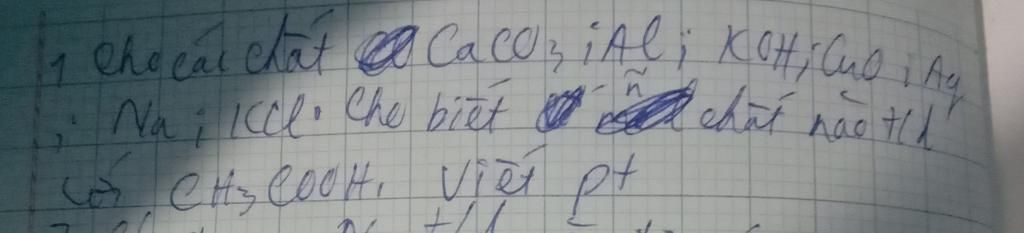 1 Cho các chất CaCO3; Al; KOH; CuO; Ag
; Na; KCl. Cho biết ~ chất nào t/d
với CH3COOH. Viết pt